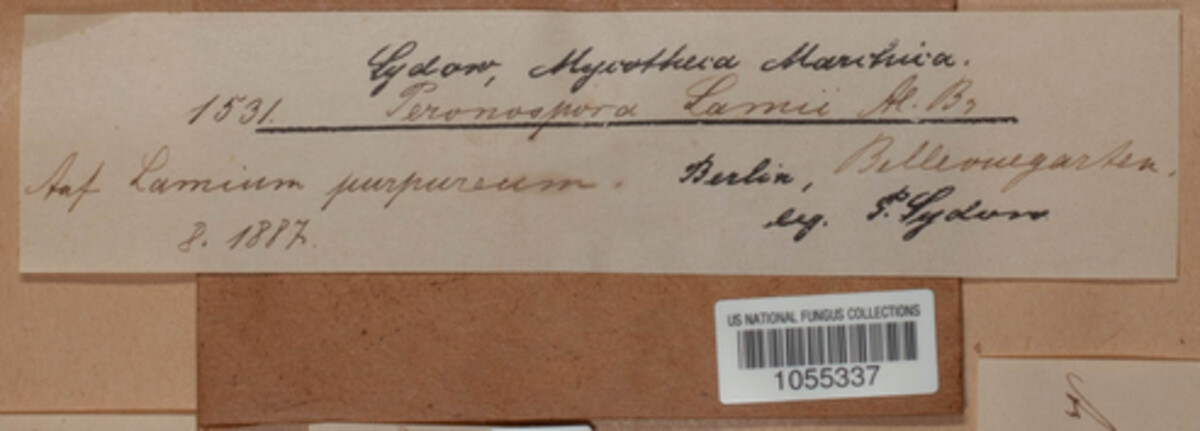 Sydow, Mycotheca Marchica.
1531. Peronospora Lamii Al. Br.
Auf Lamium purpureum. Berlin, Bellevuegarten.
8. 1887. leg. P. Sydow
US NATIONAL FUNGUS COLLECTIONS
1055337